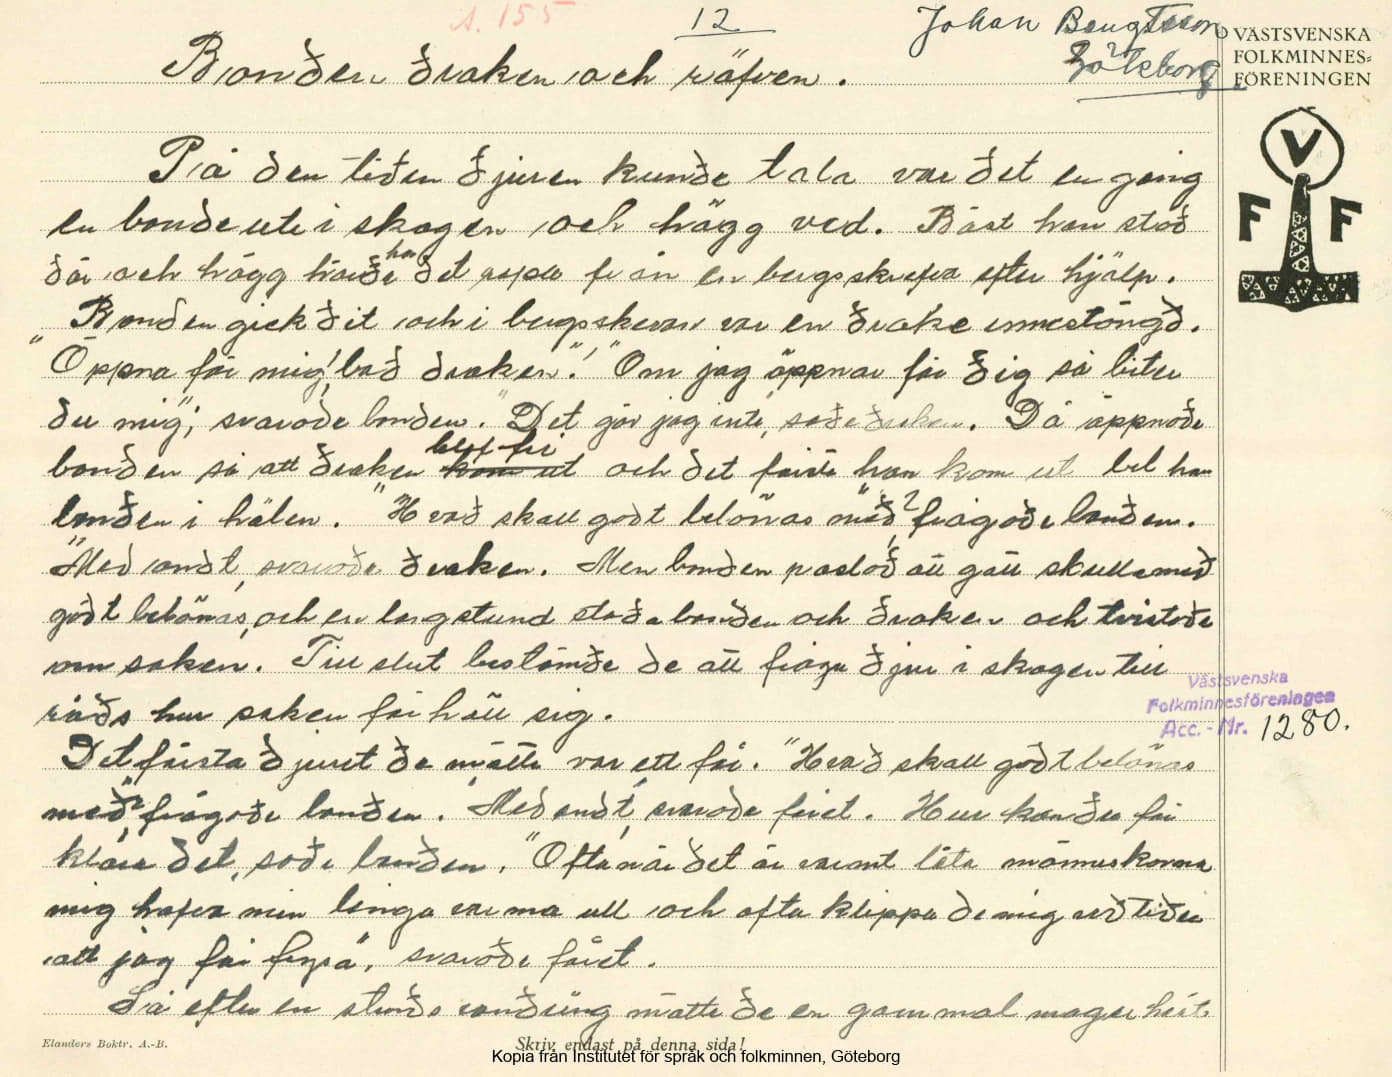 s. 155
12
Johan Bengtsson
Göteborg
VÄSTSVENSKA
FOLKMINNES=
FÖRENINGEN
V
F F
Bonden draken och räfven.
På den tiden djuren kunde tala var det en gång
en bonde ute i skogen och högg ved. Bäst han stod
där och högg hörde han det ropa från en bergsskrefva efter hjälp.
Bonden gick dit och i bergsskrevan var en drake innestängd.
"Öppna för mig! bad draken". "Om jag öppnar för dig så biter
du mig", svarade bonden. "Det gör jag inte, sade draken. Då öppnade
bonden så att draken blef fri kom ut och det första han kom ut bet han
bonden i hälen. "Hvad skall godt belönas med"? frågade bonden.
"Med ondt, svarade draken. Men bonden påstod att gått skulle med
gådt belönas, och en lång stund stode bonden och draken och tvistade
om saken. Till slut bestämde de att fråga djur i skogen till
råds hur saken förhåll sig.
Det första djuret de mötte var ett får. "Hvad skall gådt belönas
med"? frågade bonden. Med ondt, svarade fåret. Hur kan du för
klara det, sade bonden. "Ofta när det är varmt låta människorna
mig hafva min långa varma ull och ofta klippa de mig vid tider
att jag får frysa", svarade fåret.
Så efter en stunds vandring mötte de en gammal mager häst
Västsvenska
Folkminnesföreningen
Acc.-Nr. 1280.
Elanders Boktr. A.-B.
Skriv endast på denna sida!
Kopia från Institutet för språk och folkminnen, Göteborg